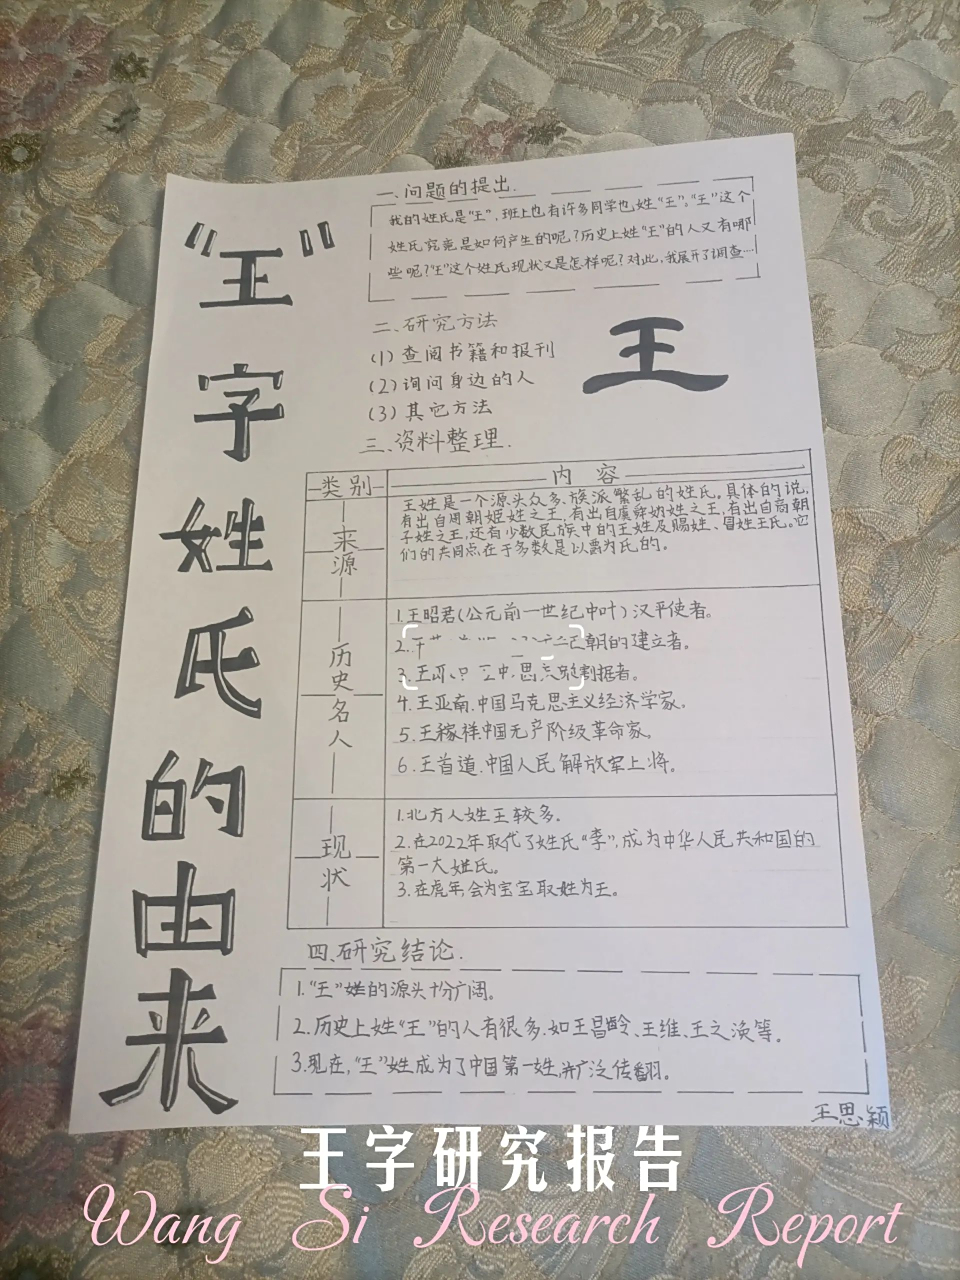 "王"字姓氏的由来
一、问题的提出.
我的姓氏是"王",班上也有许多同学也姓"王"。"王"这个
姓氏究竟是如何产生的呢?历史上姓"王"的人又有哪
些呢?"王"这个姓氏现状又是怎样呢?对此,我展开了调查…
二、研究方法
(1)查阅书籍和报刊
(2)询问身边的人
(3)其它方法
王
三、资料整理.
类别 内容
来源
王姓是一个源头众多、族派繁乱的姓氏。具体的说,
有出自周朝姬姓之王,有出自虞舜妫姓之王,有出自商朝
子姓之王,还有少数民族中的王姓及赐姓、冒姓王氏。它
们的共同点在于多数是以爵为氏的。
历史名人
1.王昭君(公元前一世纪中叶)汉平使者。
2.朝的建立者。
3.王割据者。
4.王亚南.中国马克思主义经济学家。
5.王稼祥.中国无产阶级革命家。
6.王首道.中国人民解放军上将。
现状
1.北方人姓王较多.
2.在2022年取代了姓氏"李",成为中华人民共和国的
第一大姓氏。
3.在虎年,会为宝宝取姓为王。
四.研究结论.
1."王"姓的源头十分广阔。
2.历史上姓"王"的人有很多.如王昌龄、王维、王之涣等.
3.现在,"王"姓成为了中国第一姓,并广泛传翻。
王思颖
王字研究报告
Wang Si Research Report